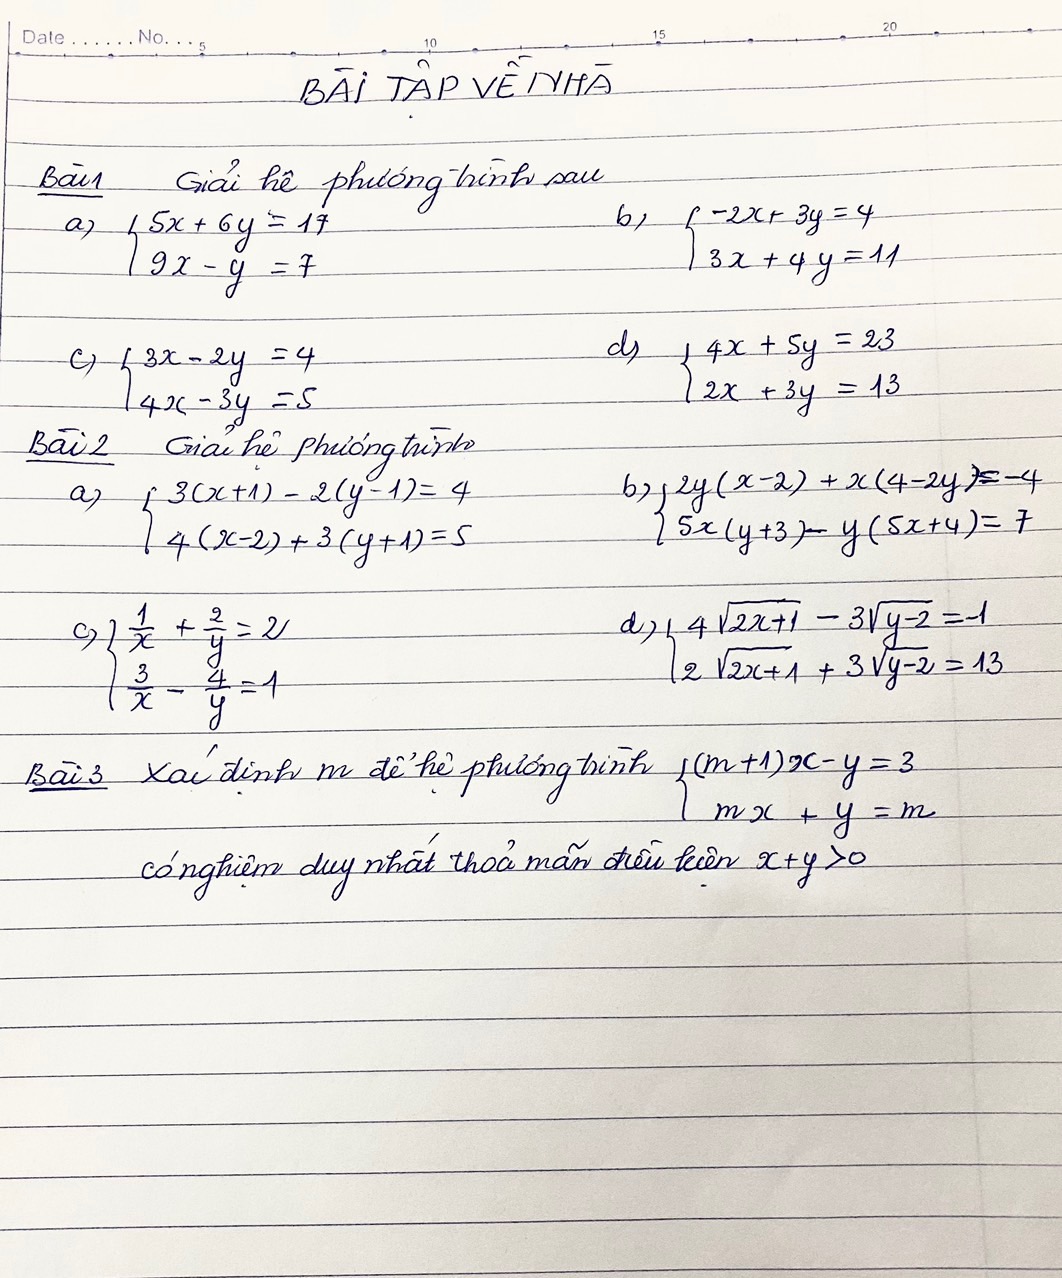 Date ...... No. ... 5 10 15 20
BÀI TẬP VỀ NHÀ
Bài 1 Giải hệ phương trình sau
a) { 5x + 6y = 17 b) { -2x + 3y = 4
9x - y = 7 3x + 4y = 11
c) { 3x - 2y = 4 d) { 4x + 5y = 23
4x - 3y = 5 2x + 3y = 13
Bài 2 Giải hệ phương trình
a) { 3(x+1) - 2(y-1) = 4 b) { 2y(x-2) + x(4-2y) = -4
4(x-2) + 3(y+1) = 5 5x(y+3) - y(5x+4) = 7
c) { 1/x + 2/y = 2 d) { 4√(2x+1) - 3√(y-2) = -1
3/x - 4/y = 1 2√(2x+1) + 3√(y-2) = 13
Bài 3 Xác định m để hệ phương trình { (m+1)x - y = 3
mx + y = m
có nghiệm duy nhất thoả mãn điều kiện x+y>0